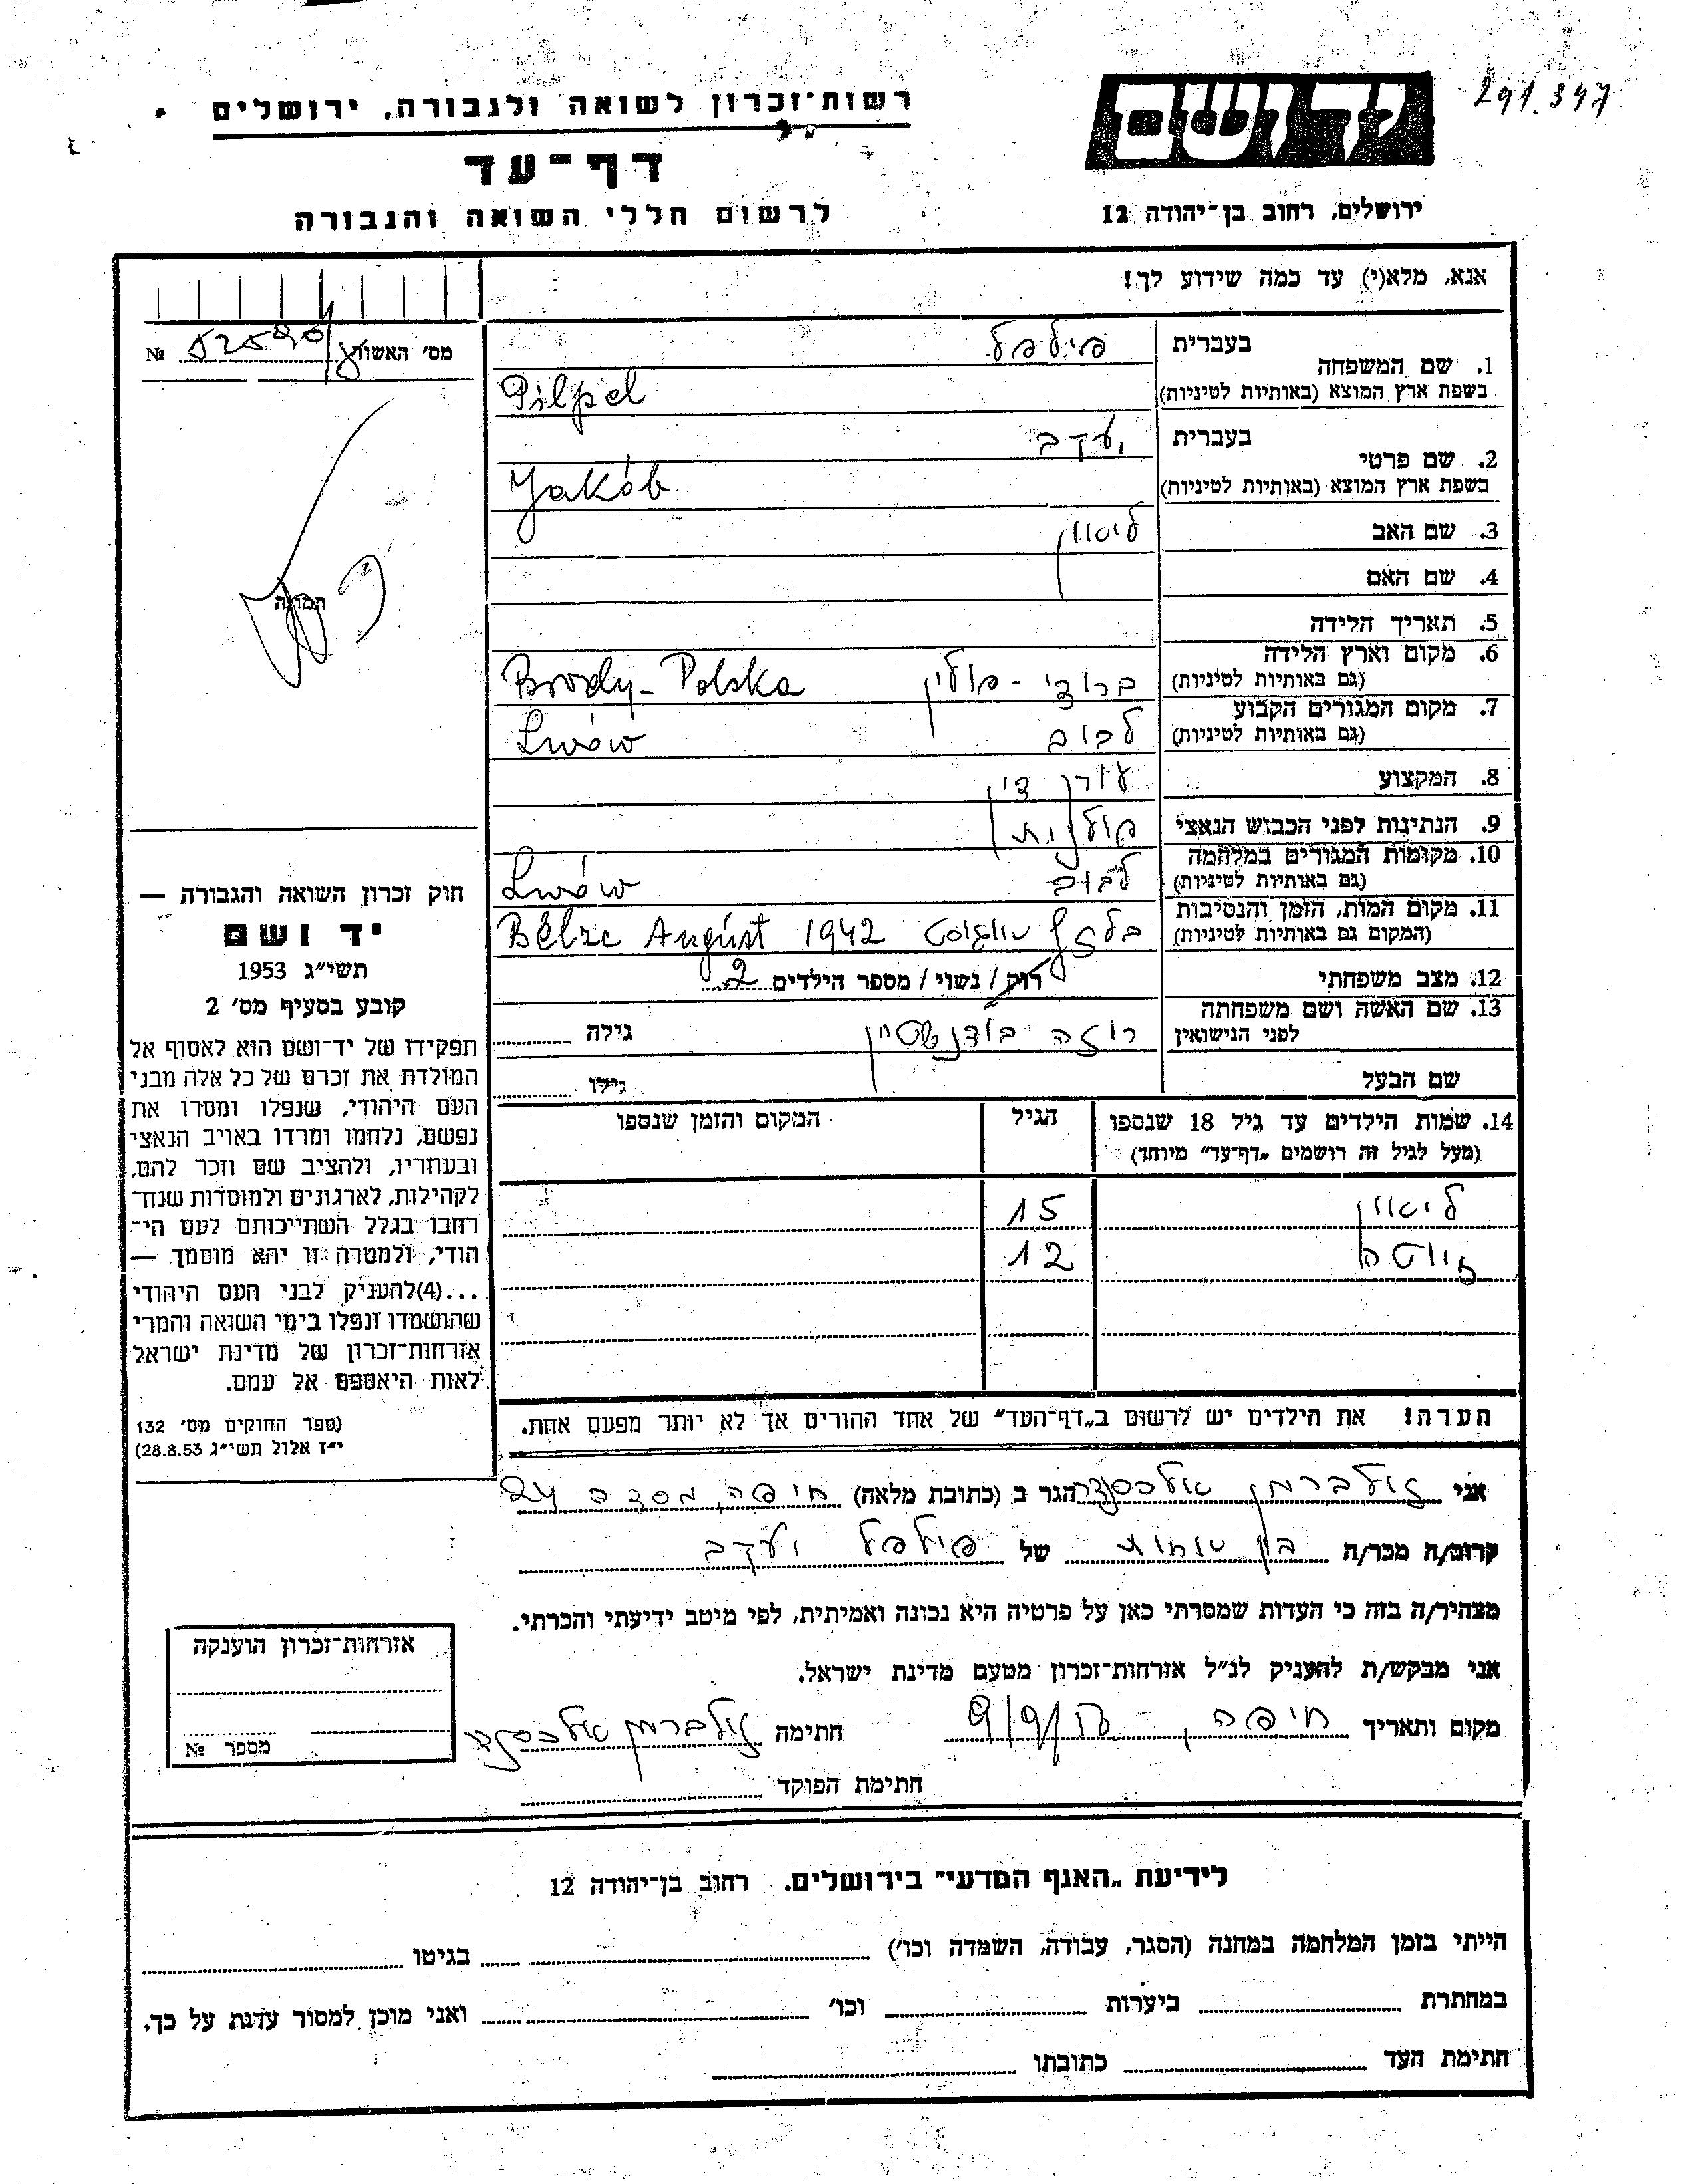 291.397
יד ושם
רשות־זכרון לשואה ולגבורה, ירושלים
דף־עד
ירושלים, רחוב בן־יהודה 12
לרשום חללי השואה והגבורה
אנא, מלא(י) עד כמה שידוע לך!
מס' האשור № 52596
תמונה
1. שם המשפחה בעברית פילפל
בשפת ארץ המוצא (באותיות לטיניות) Pilpel
2. שם פרטי בעברית יעקב
בשפת ארץ המוצא (באותיות לטיניות) Jakób
3. שם האב ליאון
4. שם האם
5. תאריך הלידה
6. מקום וארץ הלידה (גם באותיות לטיניות) ברודי - פולין Brody - Polska
7. מקום המגורים הקבוע (גם באותיות לטיניות) לבוב Lwów
8. המקצוע עורך דין
9. הנתינות לפני הכבוש הנאצי פולנית
10. מקומות המגורים במלחמה (גם באותיות לטיניות) לבוב Lwów
11. מקום המות, הזמן והנסיבות (המקום גם באותיות לטיניות) בלזץ אוגוסט Bélzc August 1942
12. מצב משפחתי רוק / נשוי / מספר הילדים 2
13. שם האשה ושם משפחתה לפני הנישואין רוזה בודנשטיין גילה
שם הבעל גילו
14. שמות הילדים עד גיל 18 שנספו הגיל המקום והזמן שנספו
(מעל לגיל זה רושמים „דף־עד" מיוחד)
ליאון 15
12
הערה! את הילדים יש לרשום ב„דף־העד" של אחד ההורים אך לא יותר מפעם אחת.
חוק זכרון השואה והגבורה —
יד ושם
תשי"ג 1953
קובע בסעיף מס' 2
תפקידו של יד־ושם הוא לאסוף אל
המולדת את זכרם של כל אלה מבני
העם היהודי, שנפלו ומסרו את
נפשם, נלחמו ומרדו באויב הנאצי
ובעוזריו, ולהציב שם וזכר להם,
לקהילות, לארגונים ולמוסדות שנח־
רחבו בגלל השתייכותם לעם הי־
הודי, ולמטרה זו יהא מוסמך —
...(4)להעניק לבני העם היהודי
שהושמדו ונפלו בימי השואה והמרי
אזרחות־זכרון של מדינת ישראל
לאות היאספם אל עמם.
(ספר החוקים מס' 132
י"ז אלול תשי"ג 28.8.53)
אני זילברמן אלכסנדר הגר ב (כתובת מלאה) חיפה, מסדה 24
קרוב/ה מכר/ה בן אחות של פילפל יעקב
מצהיר/ה בזה כי העדות שמסרתי כאן על פרטיה היא נכונה ואמיתית, לפי מיטב ידיעתי והכרתי.
אני מבקש/ת להעניק לנ"ל אזרחות־זכרון מטעם מדינת ישראל.
מקום ותאריך חיפה, חתימה זילברמן אלכסנדר
חתימת הפוקד
אזרחות־זכרון הוענקה
מספר №
לידיעת „האגף המדעי" בירושלים. רחוב בן־יהודה 12
הייתי בזמן המלחמה במחנה (הסגר, עבודה, השמדה וכו') בגיטו
במחתרת ביערות וכו' ואני מוכן למסור עדות על כך.
חתימת העד כתובתו